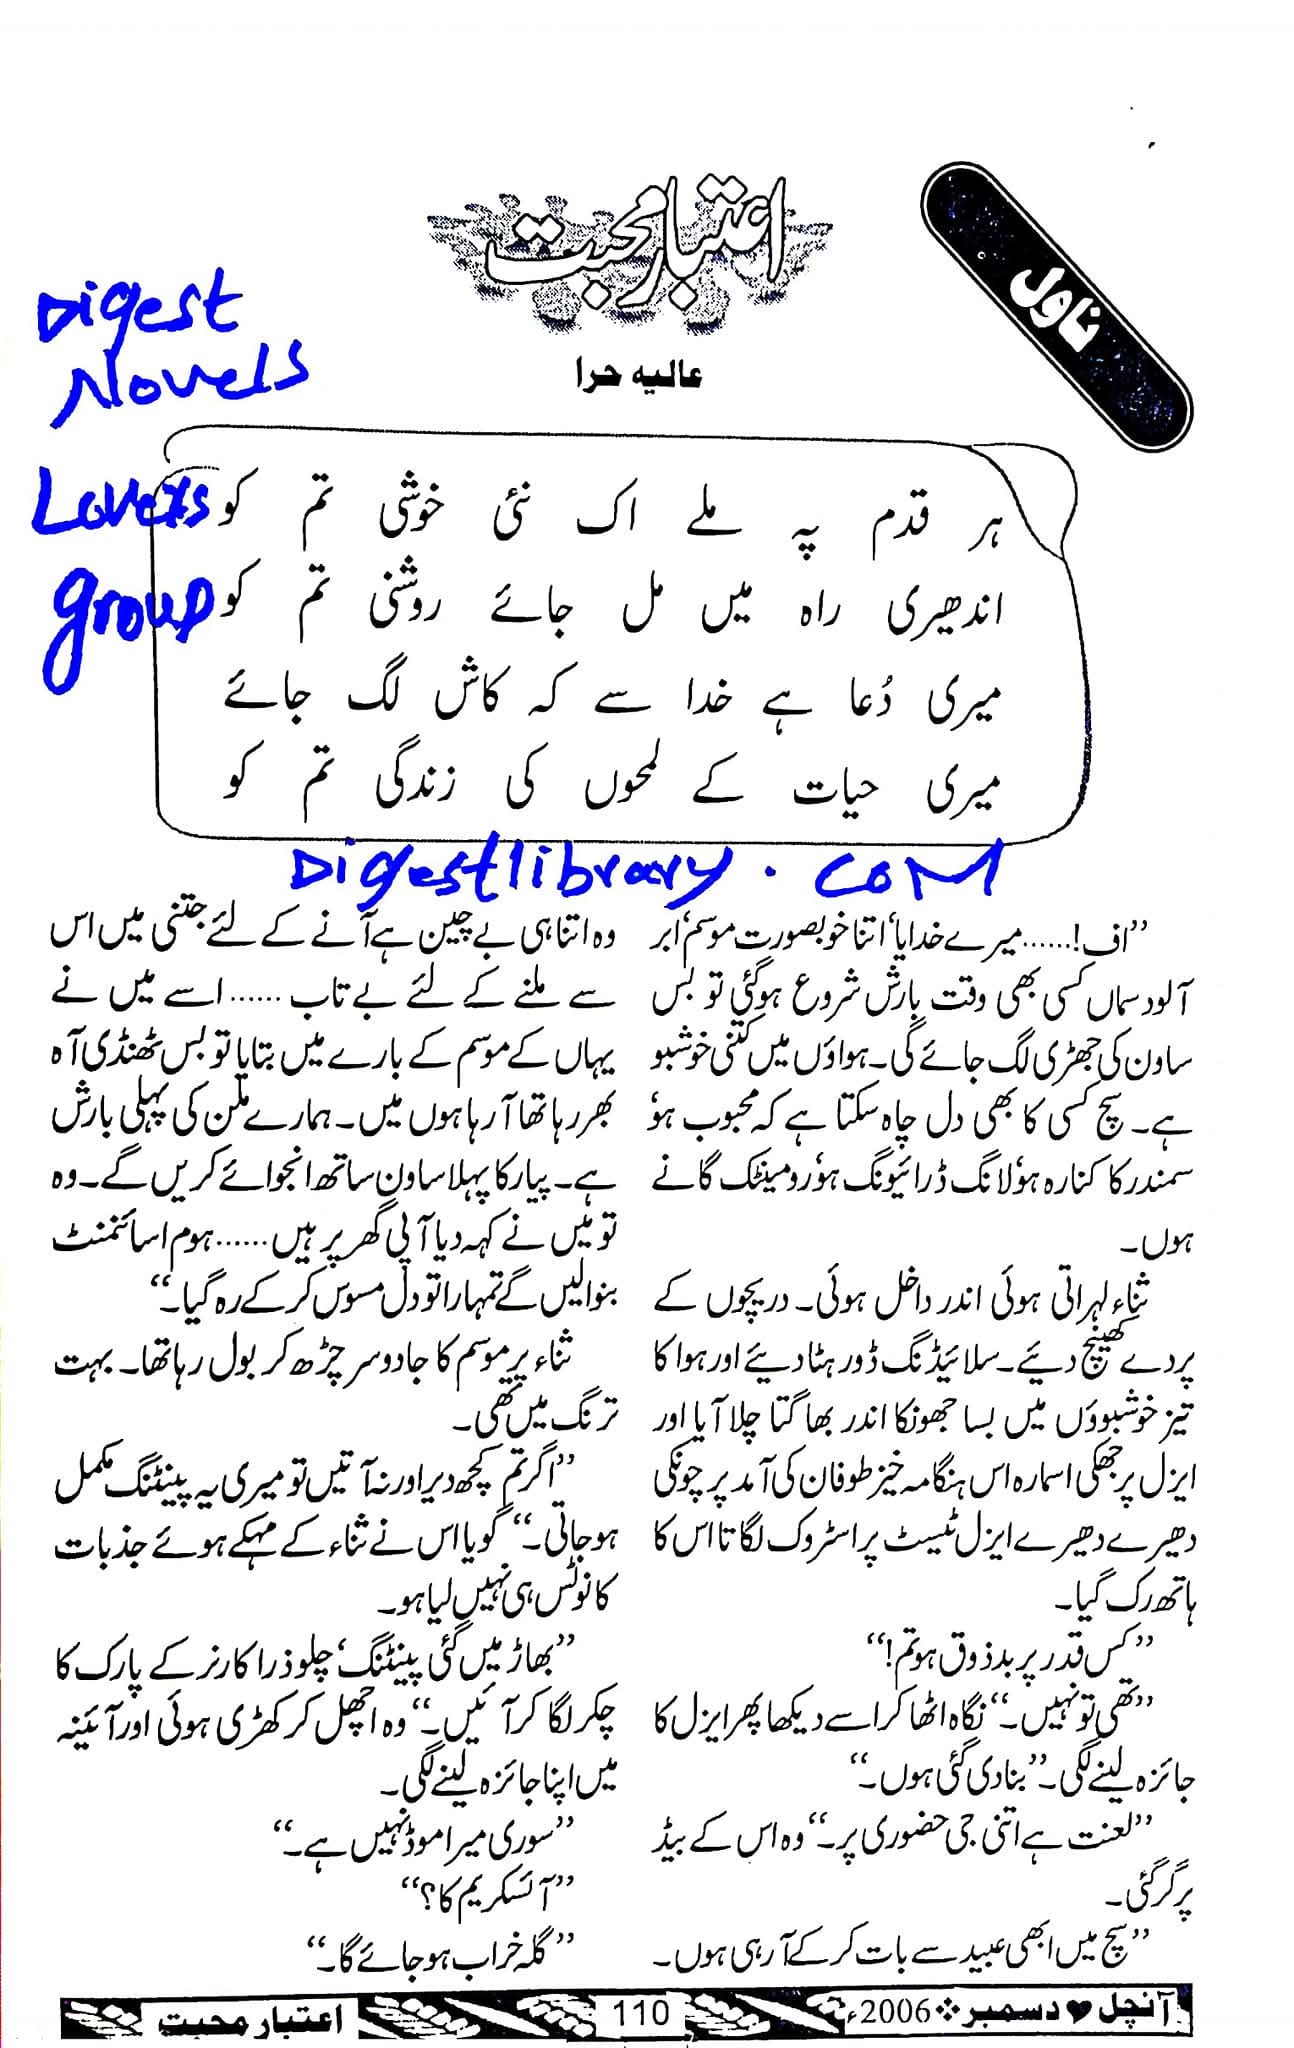 ناول
اعتبار محبت
عالیہ حرا
Digest
Novels
Lovers
group
ہر قدم پہ ملے اک نئی خوشی تم کو
اندھیری راہ میں مل جائے روشنی تم کو
میری دُعا ہے خدا سے کہ کاش لگ جائے
میری حیات کے لمحوں کی زندگی تم کو
Digestlibrary.com
’’اف!......میرے خدایا‘ اتنا خوبصورت موسم‘ ابر
آلود سماں کسی بھی وقت بارش شروع ہوگئی تو بس
ساون کی جھڑی لگ جائے گی۔ ہواؤں میں کتنی خوشبو
ہے۔ سچ کسی کا بھی دل چاہ سکتا ہے کہ محبوب ہو‘
سمندر کا کنارہ ہو‘ لانگ ڈرائیونگ ہو‘ رومینٹک گانے
ہوں۔
ثناء لہراتی ہوئی اندر داخل ہوئی۔ دریچوں کے
پردے کھینچ دیئے۔ سلائیڈنگ ڈور ہٹا دیئے اور ہوا کا
تیز خوشبوؤں میں بسا جھونکا اندر بھاگتا چلا آیا اور
ایزل پر جھکی اسمارہ اس ہنگامہ خیز طوفان کی آمد پر چونکی
دھیرے دھیرے ایزل ٹیسٹ پر اسٹروک لگاتا اس کا
ہاتھ رک گیا۔
’’کس قدر پر بدذوق ہو تم!‘‘
’’تھی تو نہیں۔‘‘ نگاہ اٹھا کر اسے دیکھا پھر ایزل کا
جائزہ لینے لگی۔ ’’بنا دی گئی ہوں۔‘‘
’’لعنت ہے اتنی جی حضوری پر۔‘‘ وہ اس کے بیڈ
پر گر گئی۔
’’سچ میں ابھی عبید سے بات کرکے آ رہی ہوں۔
وہ اتنا ہی بے چین ہے آنے کے لئے جتنی میں اس
سے ملنے کے لئے بے تاب...... اسے میں نے
یہاں کے موسم کے بارے میں بتایا تو بس ٹھنڈی آہ
بھر رہا تھا آ رہا ہوں میں۔ ہمارے ملن کی پہلی بارش
ہے۔ پیار کا پہلا ساون ساتھ انجوائے کریں گے۔ وہ
تو میں نے کہہ دیا آپی گھر پر ہیں...... ہوم اسائنمنٹ
بنوالیں گے تمہارا تو دل مسوس کرکے رہ گیا۔‘‘
ثناء پر موسم کا جادو سر چڑھ کر بول رہا تھا۔ بہت
ترنگ میں تھی۔
’’اگر تم کچھ دیر اور نہ آتیں تو میری یہ پینٹنگ مکمل
ہوجاتی۔‘‘ گویا اس نے ثناء کے مہکے ہوئے جذبات
کا نوٹس ہی نہیں لیا ہو۔
’’بھاڑ میں گئی پینٹنگ‘ چلو ذرا کارنر کے پارک کا
چکر لگا کر آئیں۔‘‘ وہ اچھل کر کھڑی ہوئی اور آئینہ
میں اپنا جائزہ لینے لگی۔
’’سوری میرا موڈ نہیں ہے۔‘‘
’’آئسکریم کا؟‘‘
’’گلہ خراب ہوجائے گا۔‘‘
آنچل ♥ دسمبر ❖ 2006ء 110 اعتبار محبت